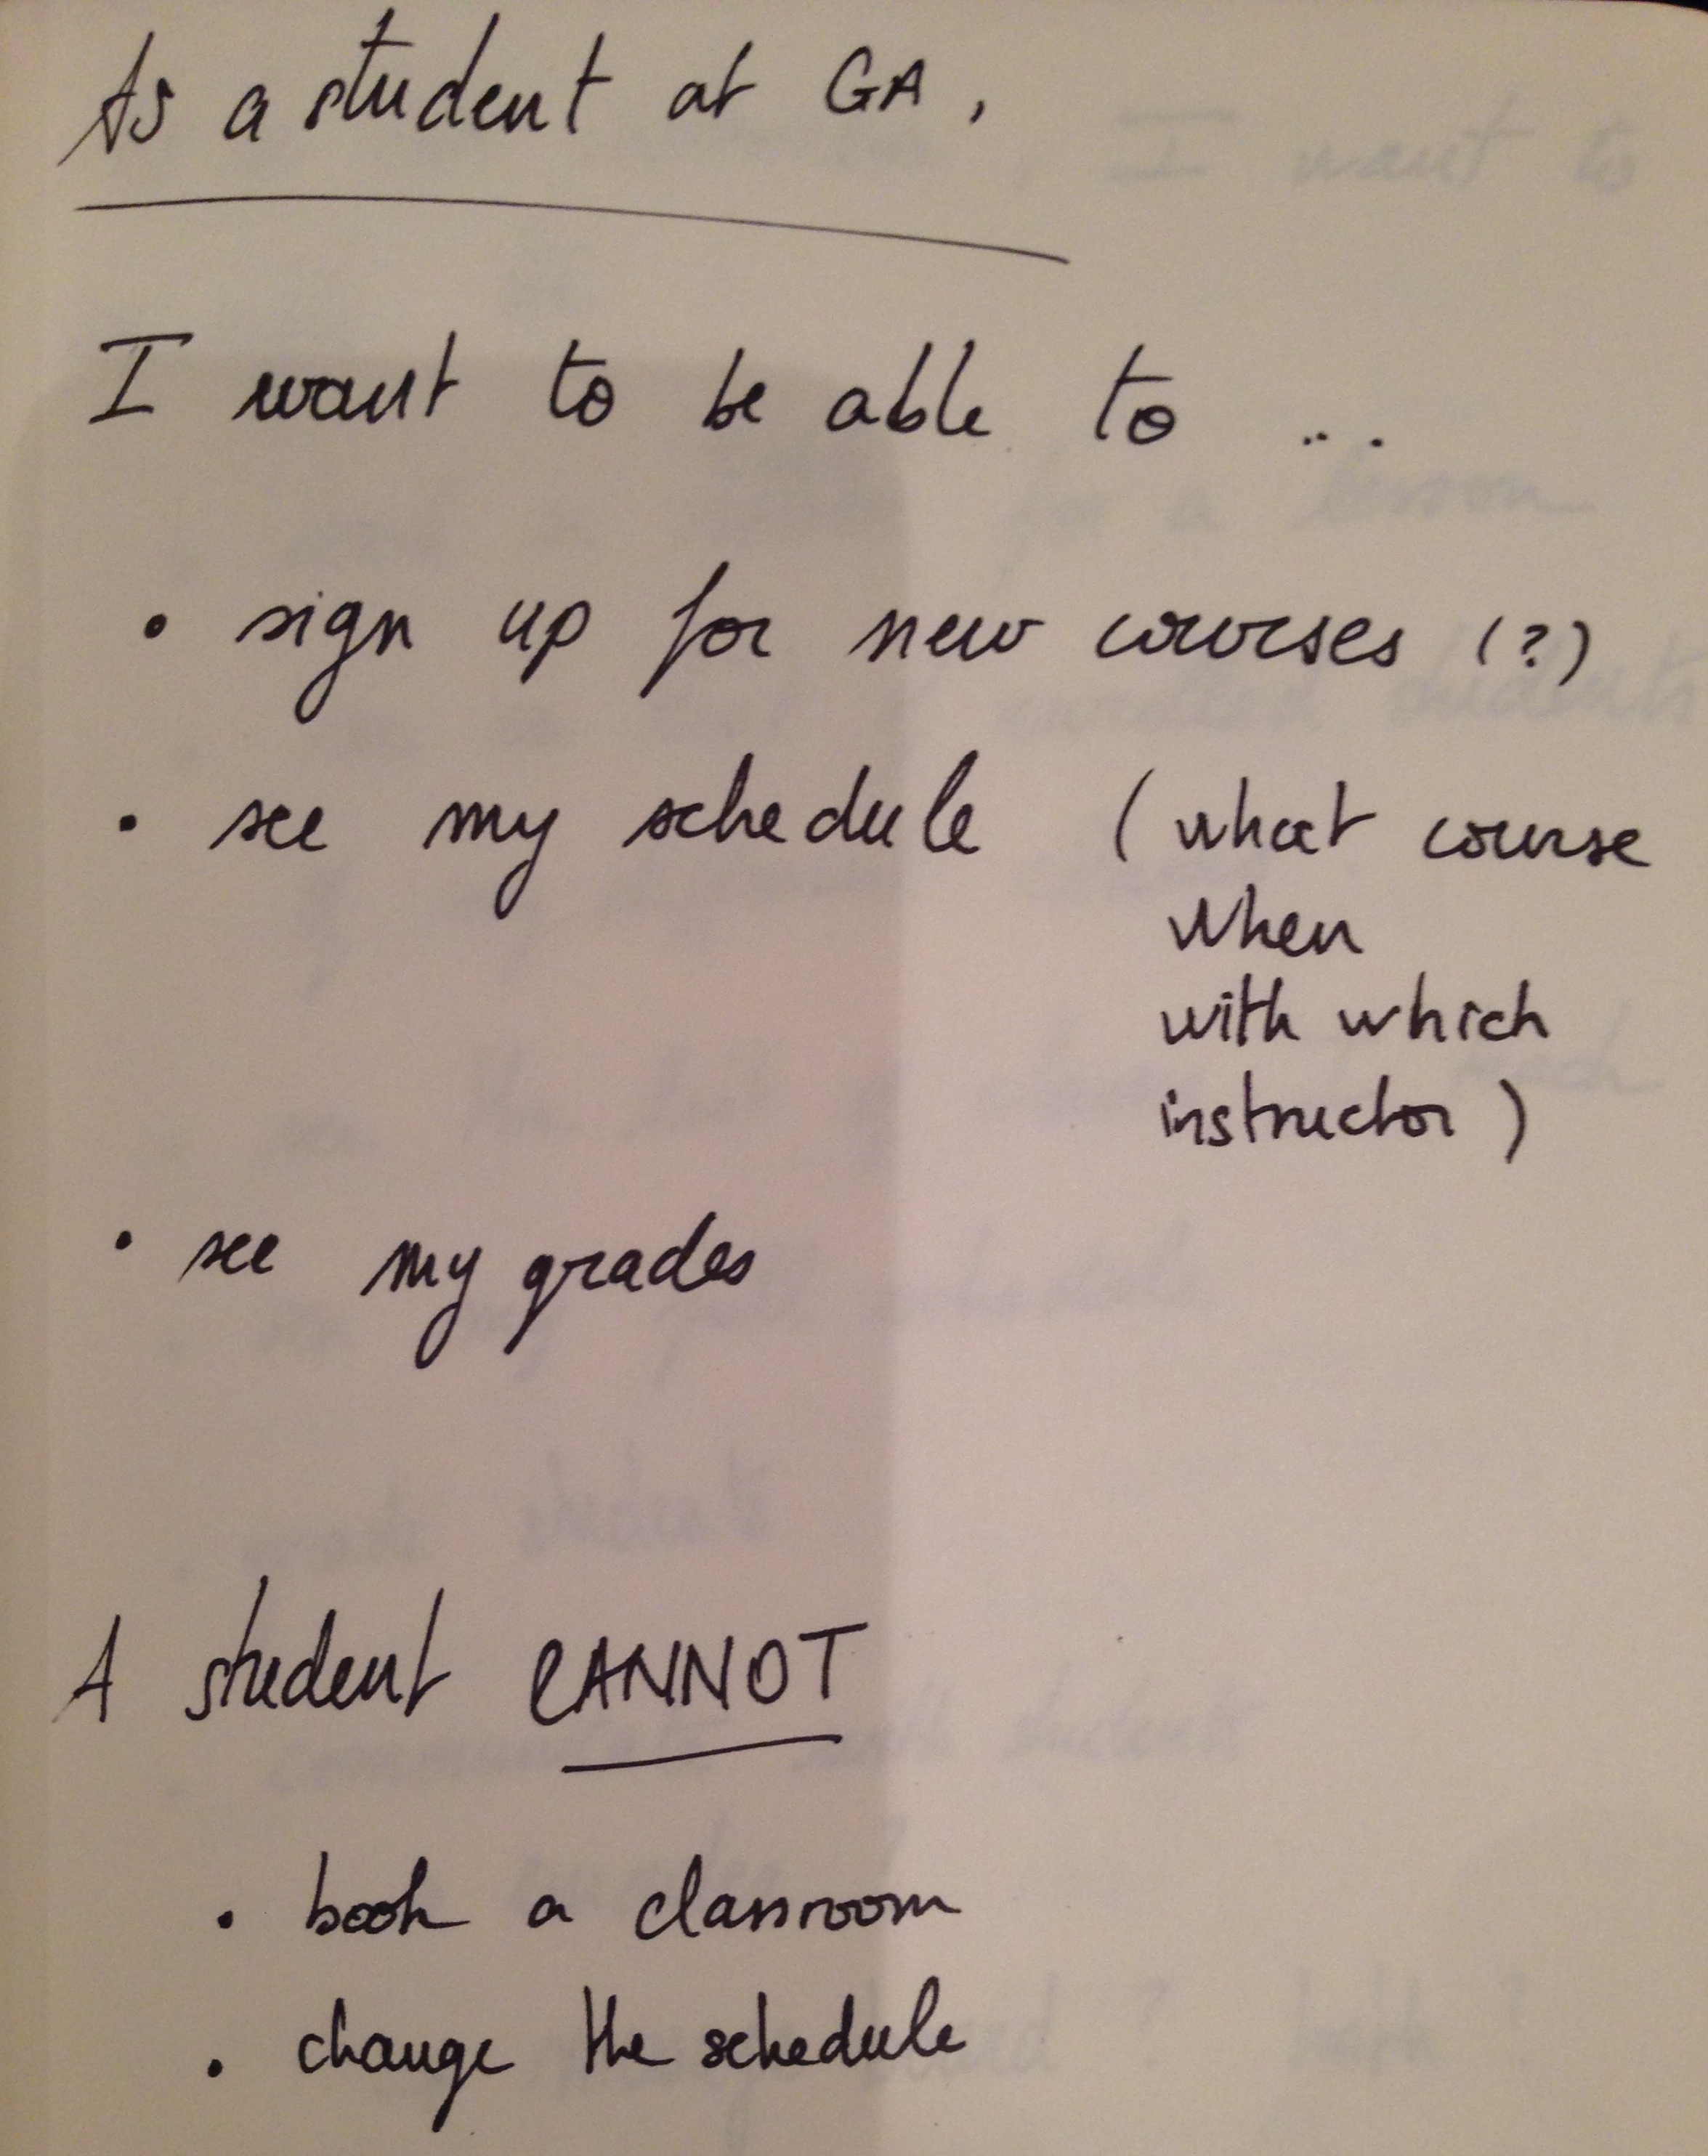 As a student at GA,
I want to be able to ...
• sign up for new courses (?)
• see my schedule (what course
when
with which
instructor)
• see my grades
A student CANNOT
• book a classroom
• change the schedule